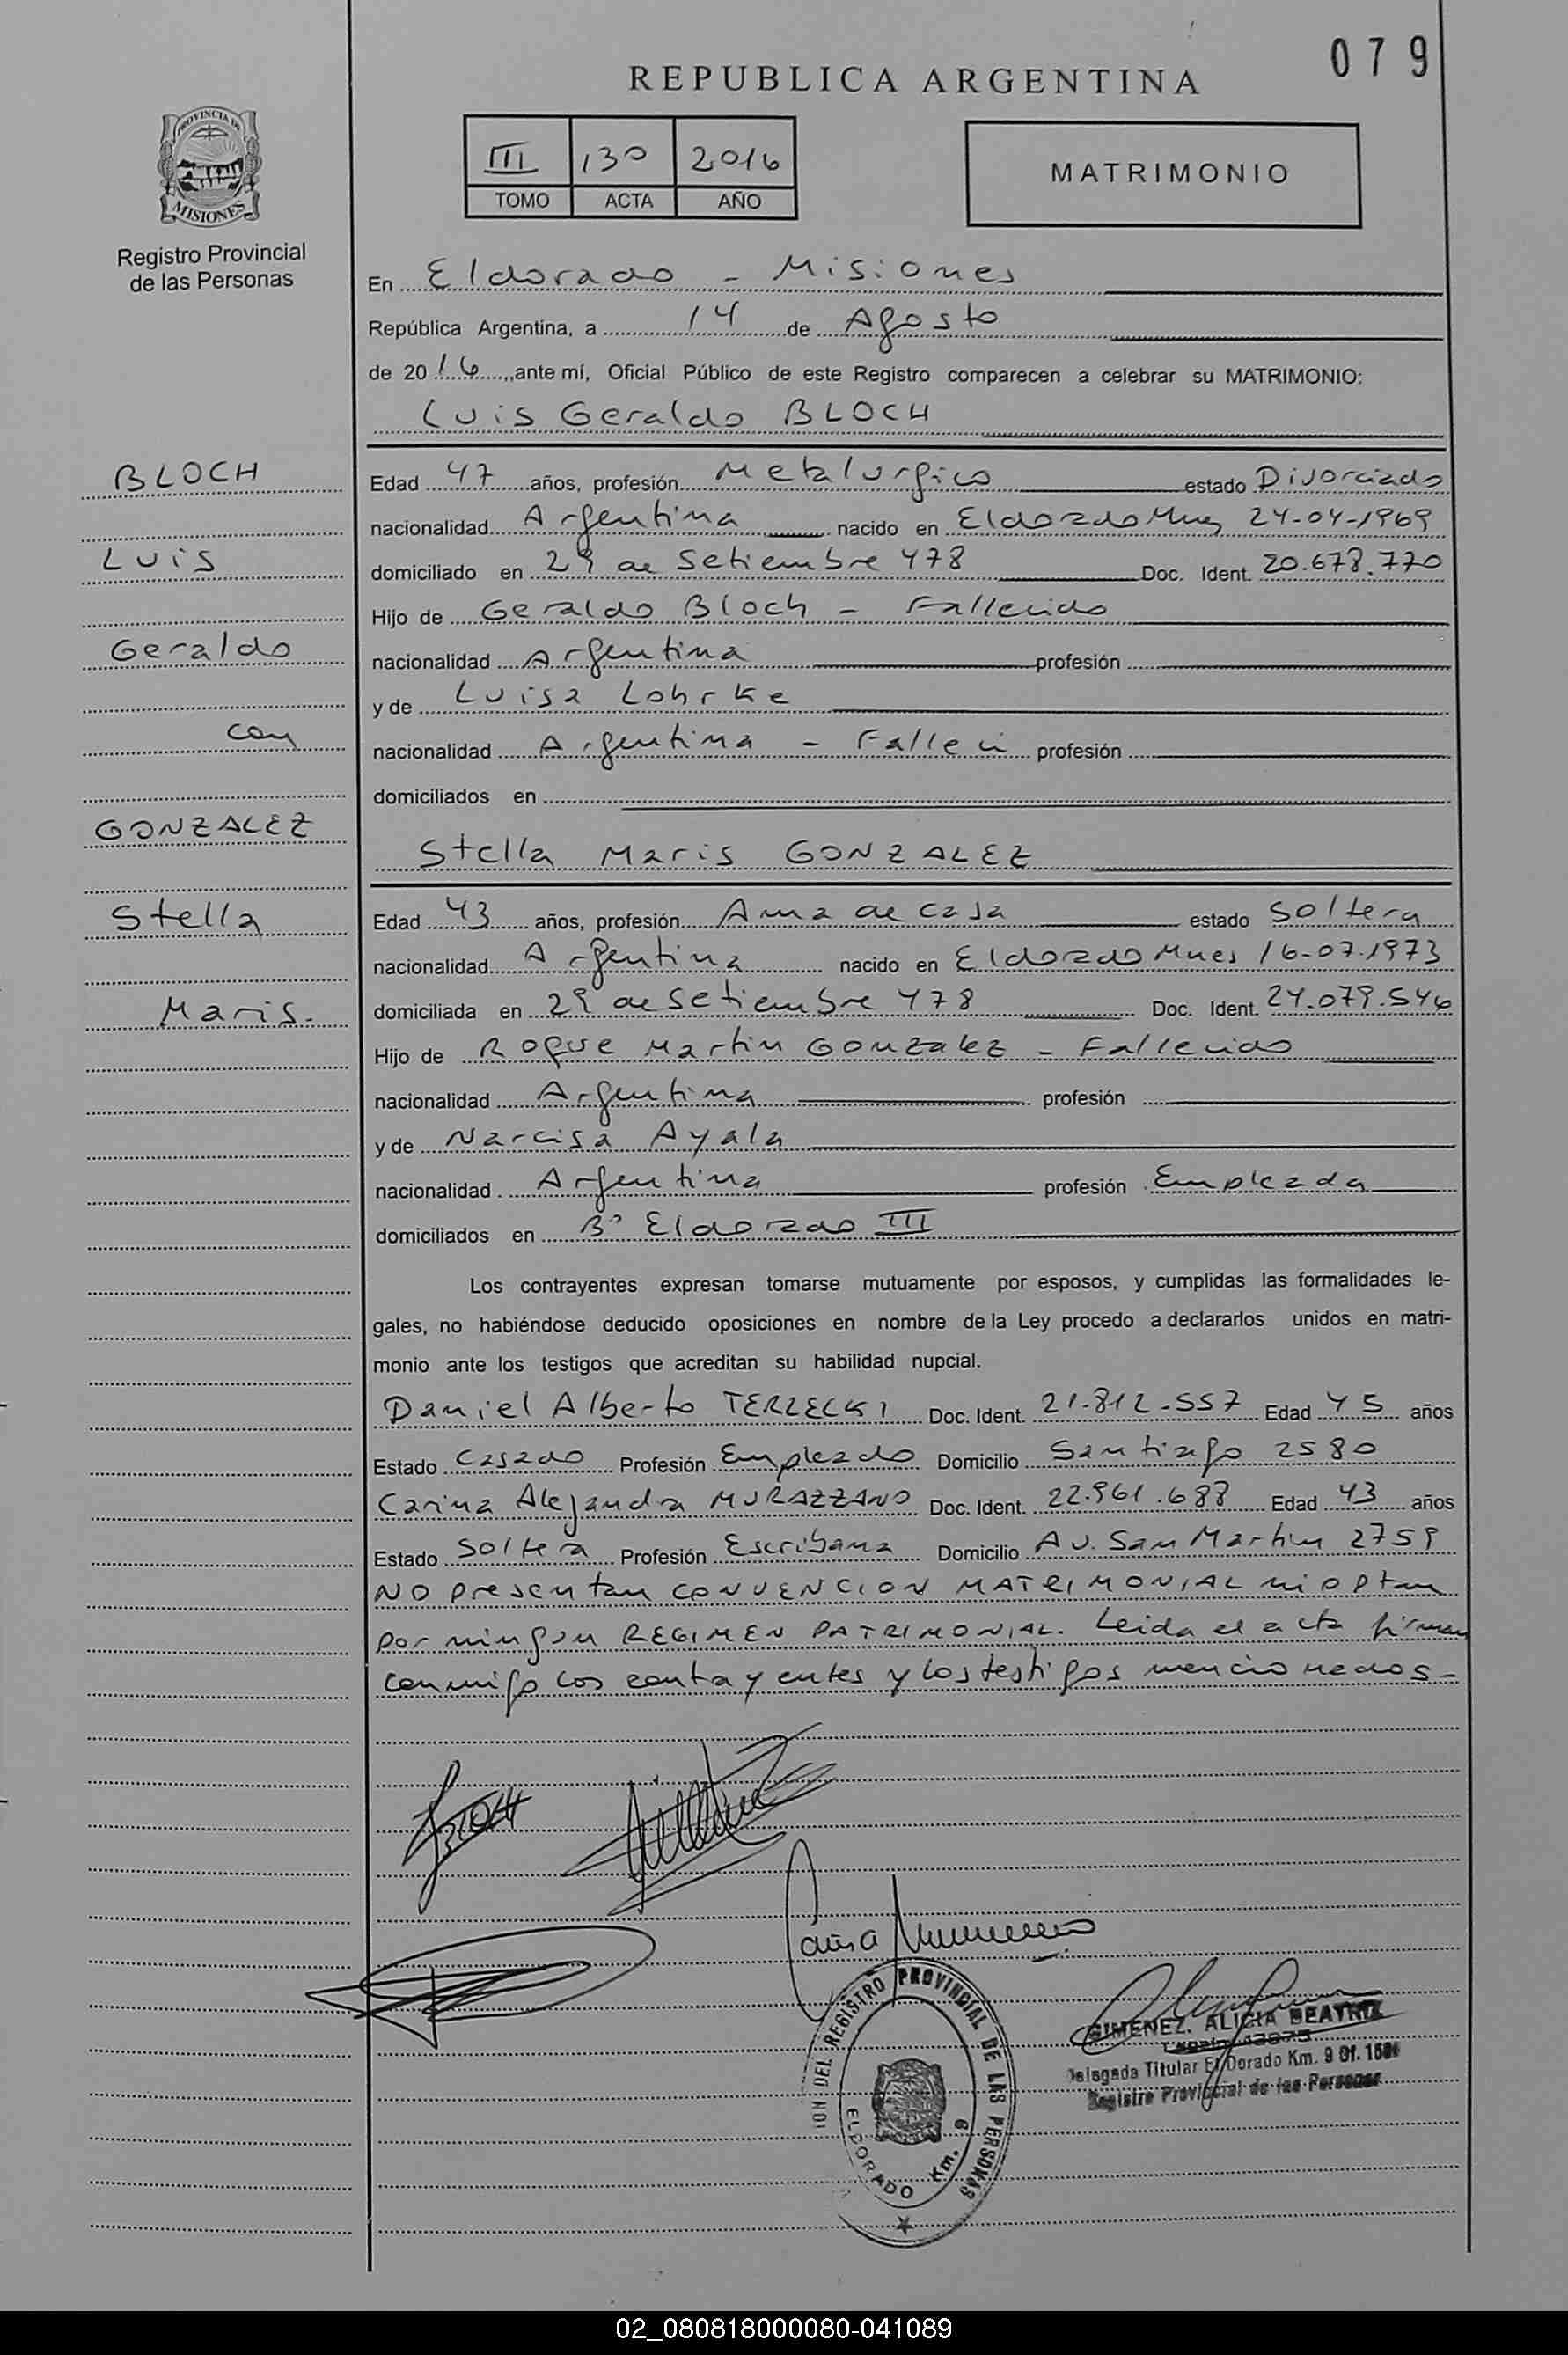 079
REPUBLICA ARGENTINA
PROVINCIA DE
MISIONES
Registro Provincial
de las Personas
III 130 2016
TOMO ACTA AÑO
MATRIMONIO
En Eldorado - Misiones
República Argentina, a 14 de Agosto
de 2016, ante mí, Oficial Público de este Registro comparecen a celebrar su MATRIMONIO:
Luis Geraldo BLOCH
BLOCH
Luis
Geraldo
con
GONZALEZ
Stella
Maris.
Edad 47 años, profesión Metalurgico estado Divorciado
nacionalidad Argentina nacido en Eldorado Mnes 24-04-1969
domiciliado en 29 de Setiembre 478 Doc. Ident. 20.678.770
Hijo de Geraldo Bloch - Fallecido
nacionalidad Argentina profesión
y de Luisa Lohrke
nacionalidad Argentina - Falleci profesión
domiciliados en
Stella Maris GONZALEZ
Edad 43 años, profesión Ama de casa estado Soltera
nacionalidad Argentina nacido en Eldorado Mnes 16-07-1973
domiciliada en 29 de Setiembre 478 Doc. Ident. 24.079.546
Hijo de Roque Martin Gonzalez - Fallecido
nacionalidad Argentina profesión
y de Narcisa Ayala
nacionalidad Argentina profesión Empleada
domiciliados en B° Eldorado III
Los contrayentes expresan tomarse mutuamente por esposos, y cumplidas las formalidades le-
gales, no habiéndose deducido oposiciones en nombre de la Ley procedo a declararlos unidos en matri-
monio ante los testigos que acreditan su habilidad nupcial.
Daniel Alberto TERLECKI Doc. Ident. 21.812.557 Edad 45 años
Estado Casado Profesión Empleado Domicilio Santiago 2580
Carina Alejandra MURAZZANO Doc. Ident. 22.961.688 Edad 43 años
Estado Soltera Profesión Escribana Domicilio Av. San Martin 2759
NO presentan CONVENCION MATRIMONIAL ni optan
por ningun REGIMEN PATRIMONIAL. Leida el acta firman
conmigo los contrayentes y los testigos mencionados-
ION DEL REGISTRO PROVINCIAL DE LAS PERSONAS
ELDORADO Km. 9
GIMENEZ. ALICIA BEATRIZ
Delegada Titular El Dorado Km. 9 Of.
Registro Provincial de las Personas
02_080818000080-041089